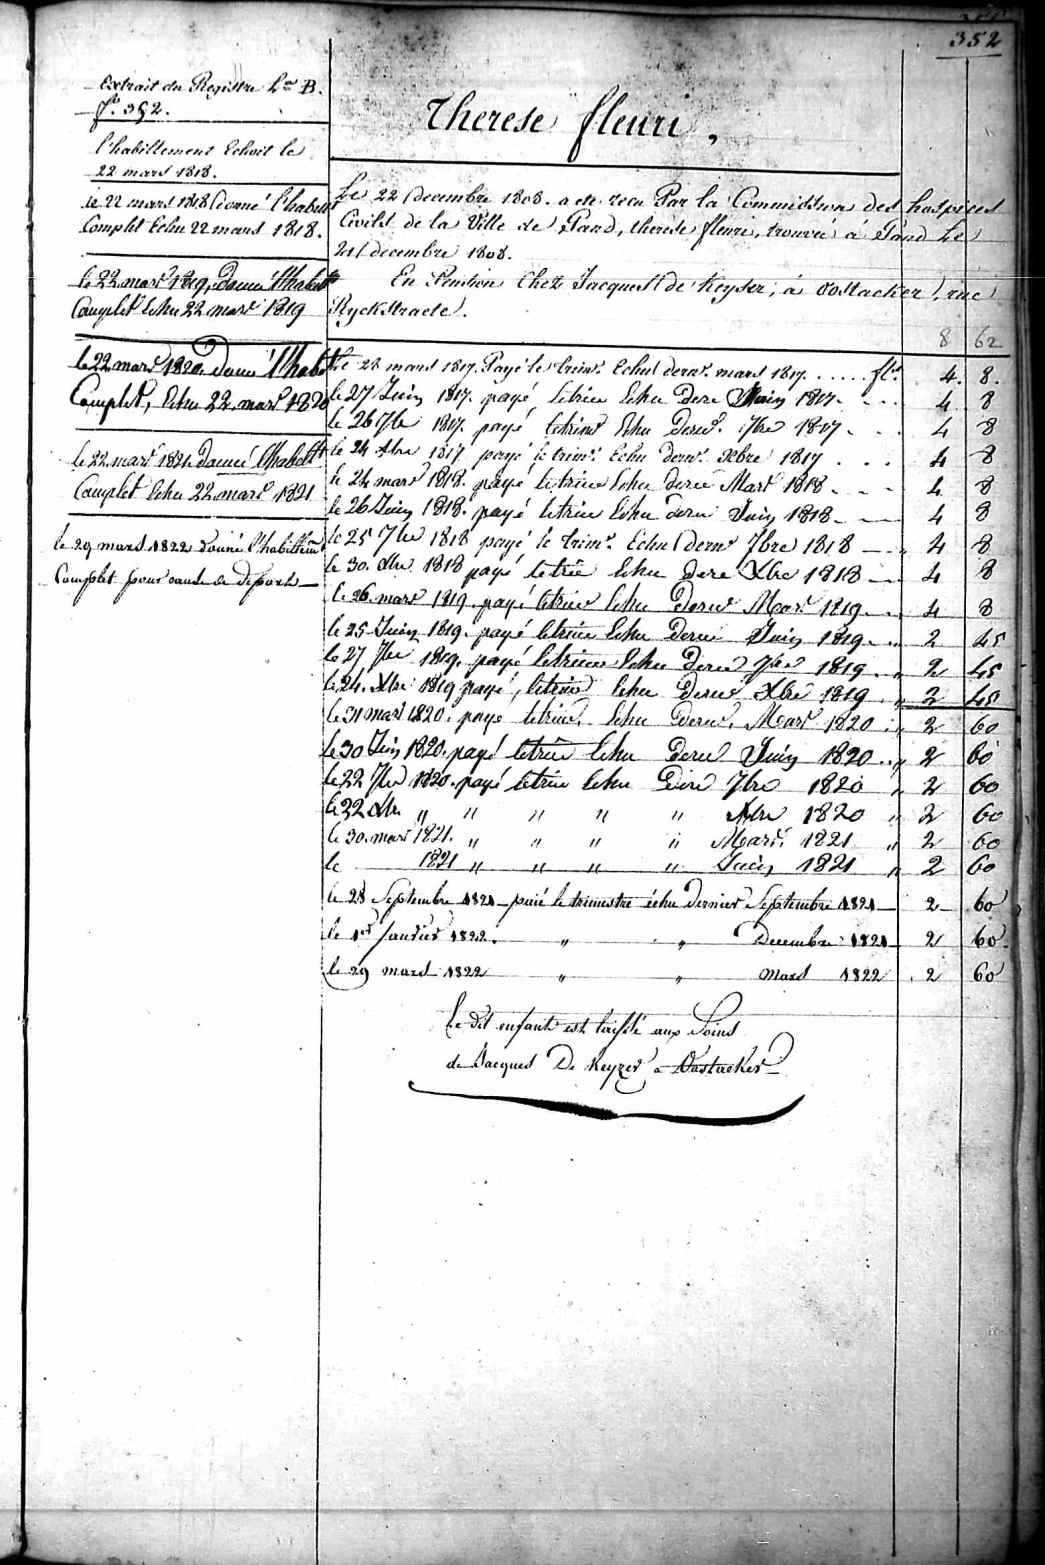 352
Extrait du Registre Lre B.
fo. 352.
l'habillement Echoit le
22 mars 1818.
le 22 mars 1818 donné l'habillt
Complet Echu 22 mars 1818.
le 22 mars 1819, donné l'habillt
Complet Echu 22 mars 1819
le 22 mars 1820 donné l'habillt
Complet, Echu 22 mars 1820
le 22 mars 1821 donné l'habillt
Complet Echu 22 mars 1821
le 29 mars 1822 donné l'habillem
Complet pour
Therese fleuri,
Le 22 decembre 1808. a ete recu Par la Commission des hospices
Civils de la Ville de Gand, therese fleuri, trouvée à Gand Le
21 decembre 1808.
En Pension Chez Jacques de Keyser, à Oostacker, rue
Ryckstraete.
8 62
Le 28 mars 1817. Payé le trimr. Echu dernr. mars 1817. . . . . . fl. 4. 8.
le 27 Juin 1817. payé letrim Echu dern Juin 1817. - - - 4 8
le 26 7bre 1817. payé letrimr Echu dernr. 7bre 1817. . . 4 8
le 24 Xbre 1817 payé le trimr. Echu dernr. Xbre 1817 . . . 4 8
le 24 mars 1818. payé letrim Echu dern Mars 1818. - - 4 8
le 26 Juin 1818. payé letrim Echu dern Juin 1818 - - 4 8
le 25 7bre 1818 payé le trimr. Echu dernr 7bre 1818 — „ 4 8
le 30. Xbre 1818 payé letrim Echu dern Xbre 1818 — 4 8
le 26 mars 1819. payé letrim Echu dernr Mars 1819. „ 4 8
le 25 Juin 1819. payé letrim Echu dern Juin 1819. „ 2 45
le 27 7bre 1819. payé letrim Echu dern 7bre 1819. „ 2 45
le 24. Xbre 1819 payé, letrim Echu dernr Xbre 1819 „ 2 45
le 31 mars 1820. payé letrim. Echu dernr. Mars 1820 „ 2 60
le 30 Juin 1820. payé letrim Echu dern Juin 1820 „ 2 60
le 22 7bre 1820. payé letrim Echu dern 7bre 1820 „ 2 60
le 22 Xbre „ „ „ „ „ Xbre 1820 „ 2 60
le 30. mars 1821. „ „ „ „ Mars. 1821 „ 2 60
le — 1821 „ „ „ „ Juin 1821 „ 2 60
le 28 Septembre 1821 — paié le trimestre échu dernier Septembre 1821 — 2 60
le 1er Janvier 1822. „ „ Decembre 1821 2 60.
le 29 mars 1822 „ „ mars 1822 2 60
Le dit enfant est laissé aux Soins
de Jacques De Keyzer a Oostacker